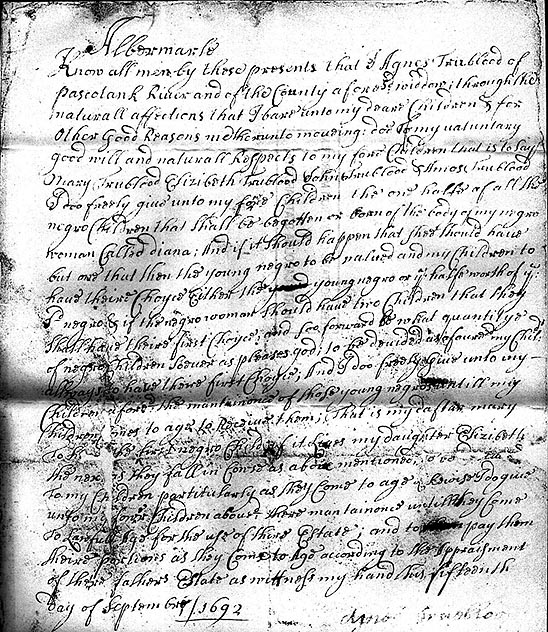 Albermarle
Know all men by these presents that I Agnes Trublood of
pascotank River and of the County afore sd widdow; through the
naturall affections that I bare unto my deare Children & for
Other Good Reasons me thereunto moveing: doe of my valuntary
good will and naturall Respects to my fore Children that is to say
Mary Trublood Elizibeth Trublood John Trublood & Amos Trublood
I doo freely give unto my fore Children the one halfe of all the
negro Children that shall be begotten or born of the body of my negro
woman Called diana; And if it should happen that shee should have
but one that then the young negro to be valued and my Children to
have theire Choyce Either the young negro or ye halfe worth of ye
sd negro: & if the negro woman should have two Children that they
shall have theire first Choyce; and soo forward be what quantity
of negro Children soever as pleases god; to be devided as
allwayes to have theire first Choyce; And I doo freely give unto my
Children afore sd the mantainence of those young negros untill my
Children Comes to age to Receive them; That is my dafter mary
To have the first negro Child if it lives my daughter Elizibeth
the next as they fall in Corse as above mentioned;
To my Children partitularly as they Come to age I doo give
unto my fore Children above sd there mantainence untill they Come
To Lawfull age for the use of thire Estate; and to pay them
theire portions as they Come to Age according to the appraisment
of there fathers Estate as wittness my hand this fifteenth
Day of September 1692